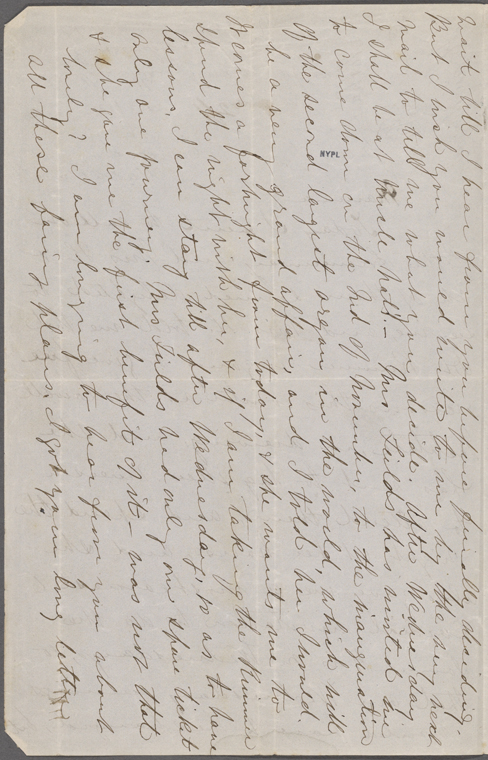 wait till I hear from you before finally deciding.
But I wish you would write to me by the very next
mail to tell me what you decide. After Wednesday
I shall be at Uncle Nat's - Mrs Fields has invited me
to come down on the 2nd of November, to the inauguration
of the second largest organ in the world, which will
be a very grand affair, and I told her I would.
It comes a fortnight from today, & she wants me to
spend the night with her, & if I am taking the
lessons, I can stay till after Wednesday, so as to have
only one journey. Mrs Fields had only one spare ticket
& she gave me the first benefit of it - was not that
lovely? I am longing to hear from you about
all these fairing plans. I got your long letter
NYPL